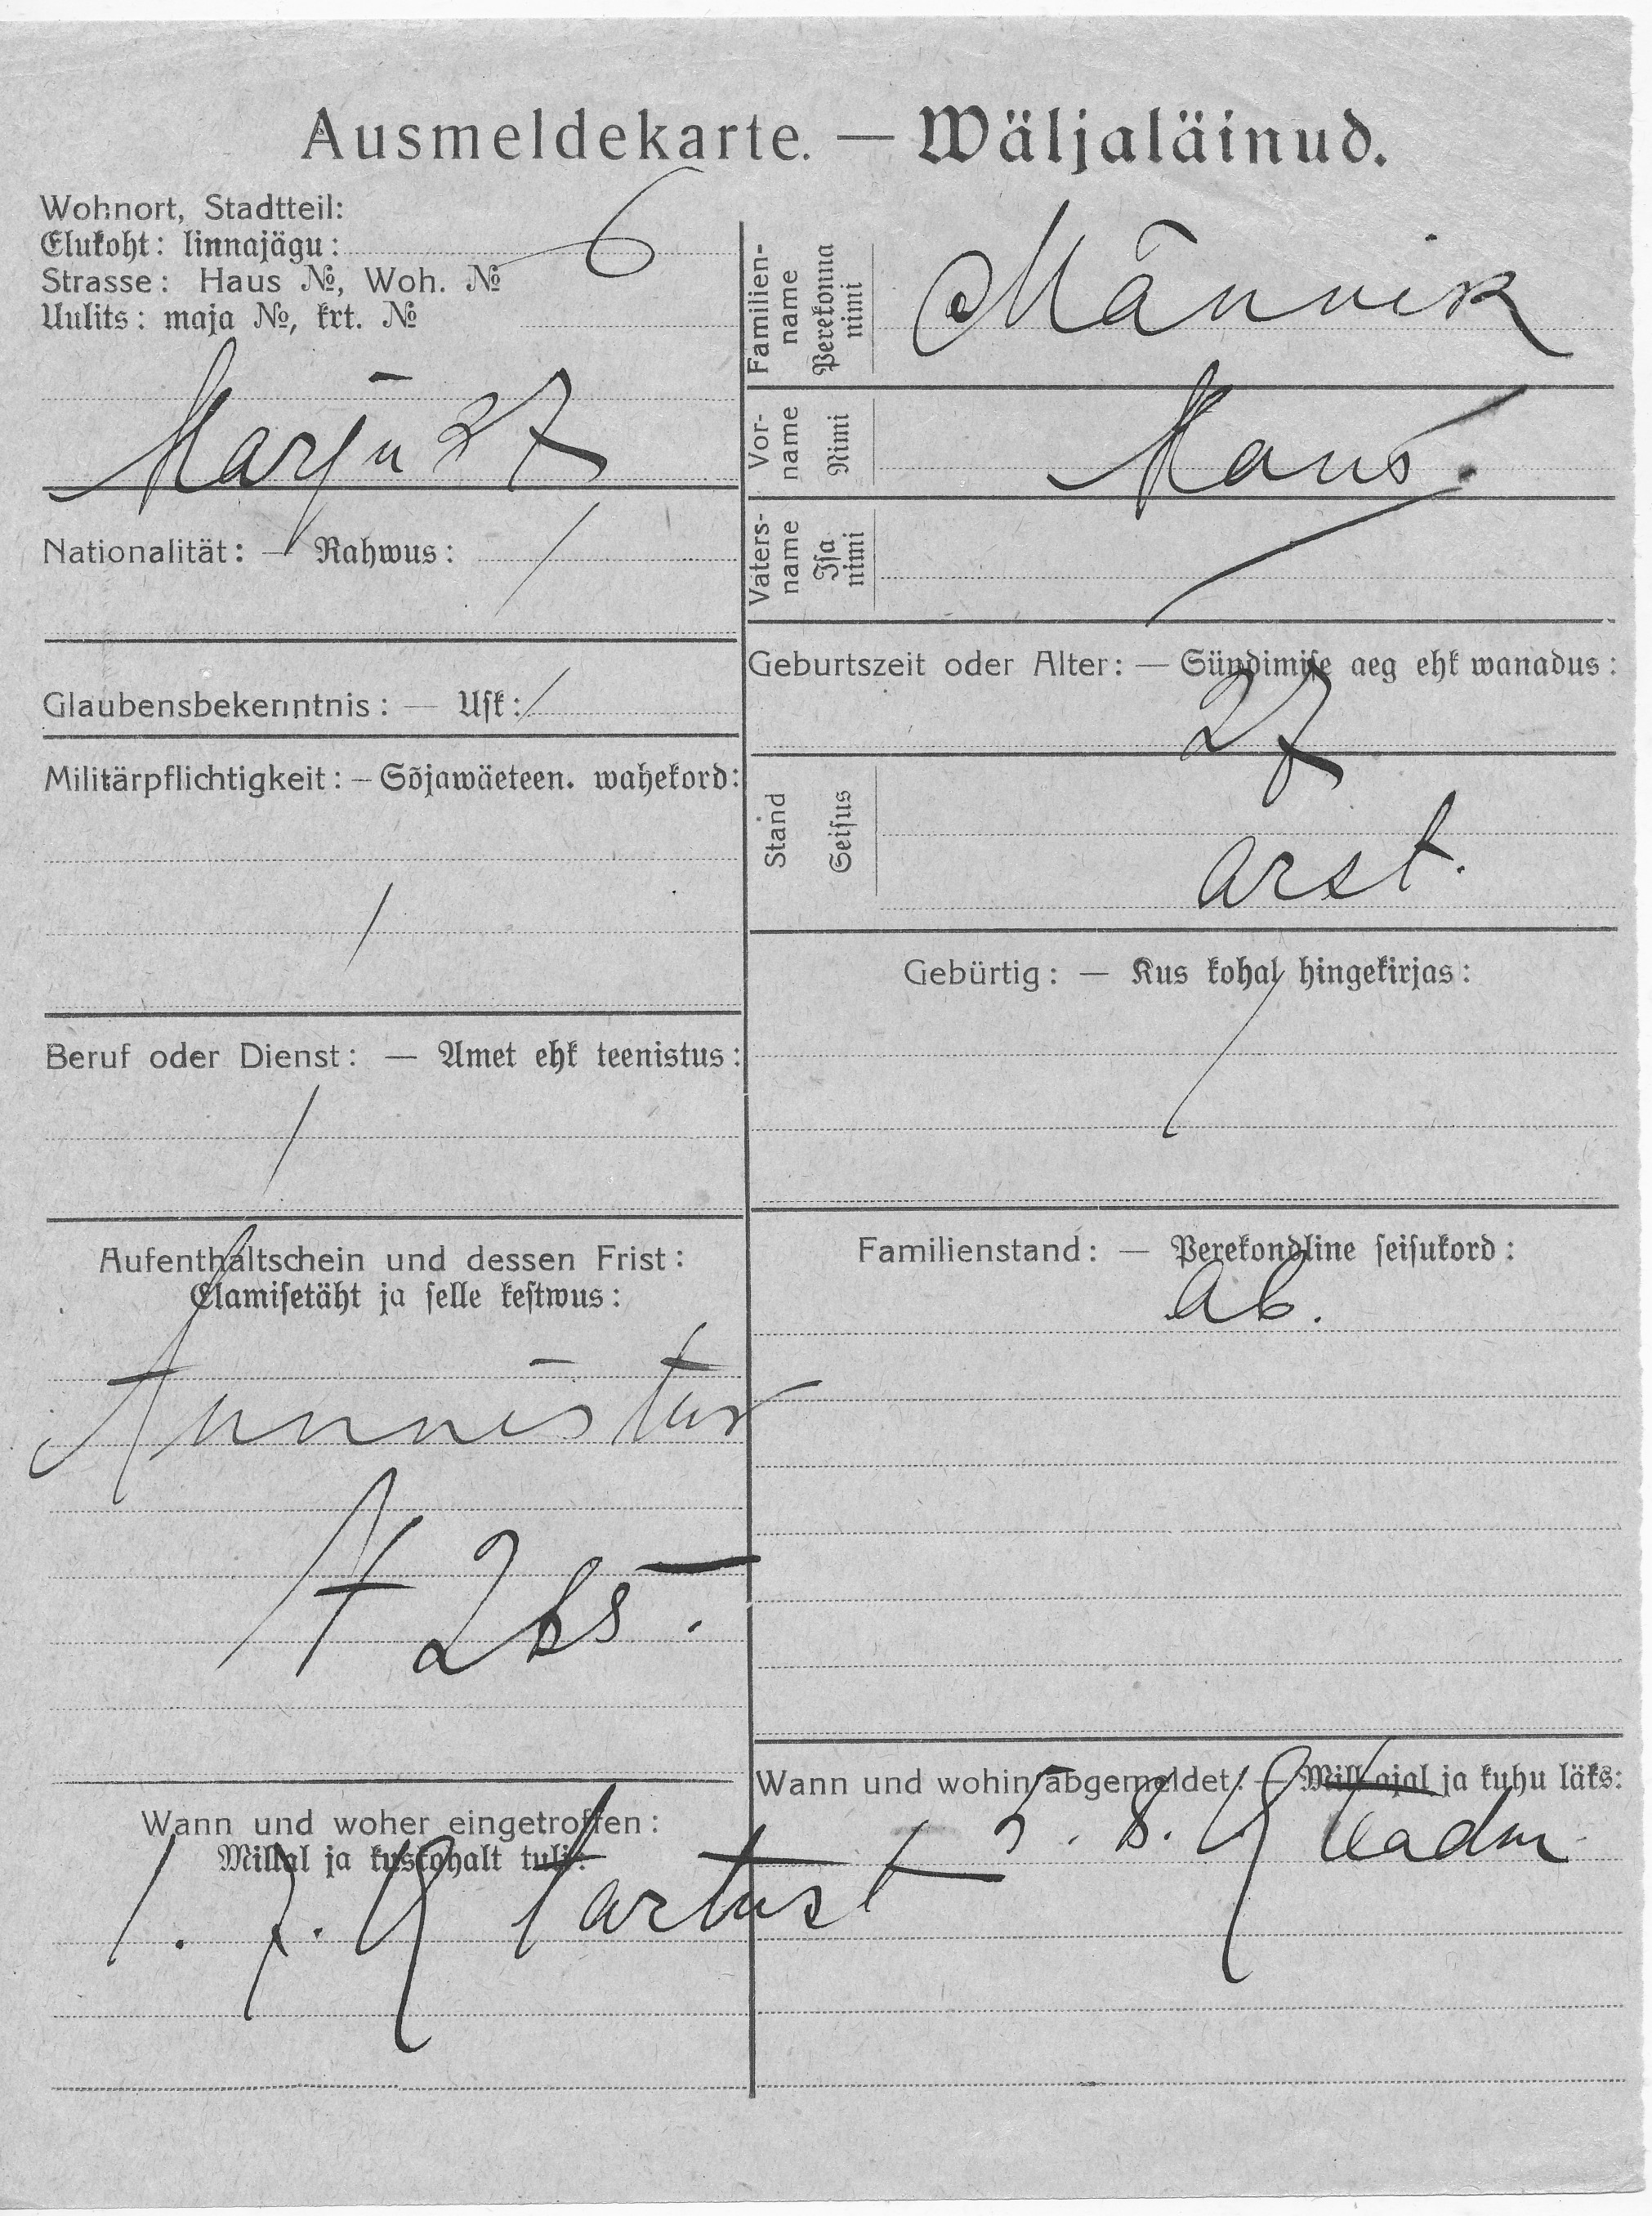 Ausmeldekarte. — Wäljaläinud.
Wohnort, Stadtteil:
Elukoht: linnajägu: 6
Strasse: Haus №, Woh. №
Uulits: maja №, krt. №
Marju 27
Nationalität: — Rahwus: /
Glaubensbekenntnis: — Usk: /
Militärpflichtigkeit: — Sõjawäeteen. wahekord:
/
Beruf oder Dienst: — Amet ehk teenistus:
/
Aufenthaltschein und dessen Frist:
Elamisetäht ja selle kestwus:
Tunnistus
Wann und woher eingetroffen:
Millal ja kuskohalt tuli:
1. 7. 19 Tartust
Familien-name Perekonna nimi
Männik
Vor-name Nimi
Hans.
Vaters-name Isa nimi
/
Geburtszeit oder Alter: — Sündimise aeg ehk wanadus:
27
Stand Seisus
arst.
Gebürtig: — Kus kohal hingekirjas:
/
Familienstand: — Perekondline seisukord:
ab.
Wann und wohin abgemeldet: — Mill ajal ja kuhu läks:
5. 8. 19